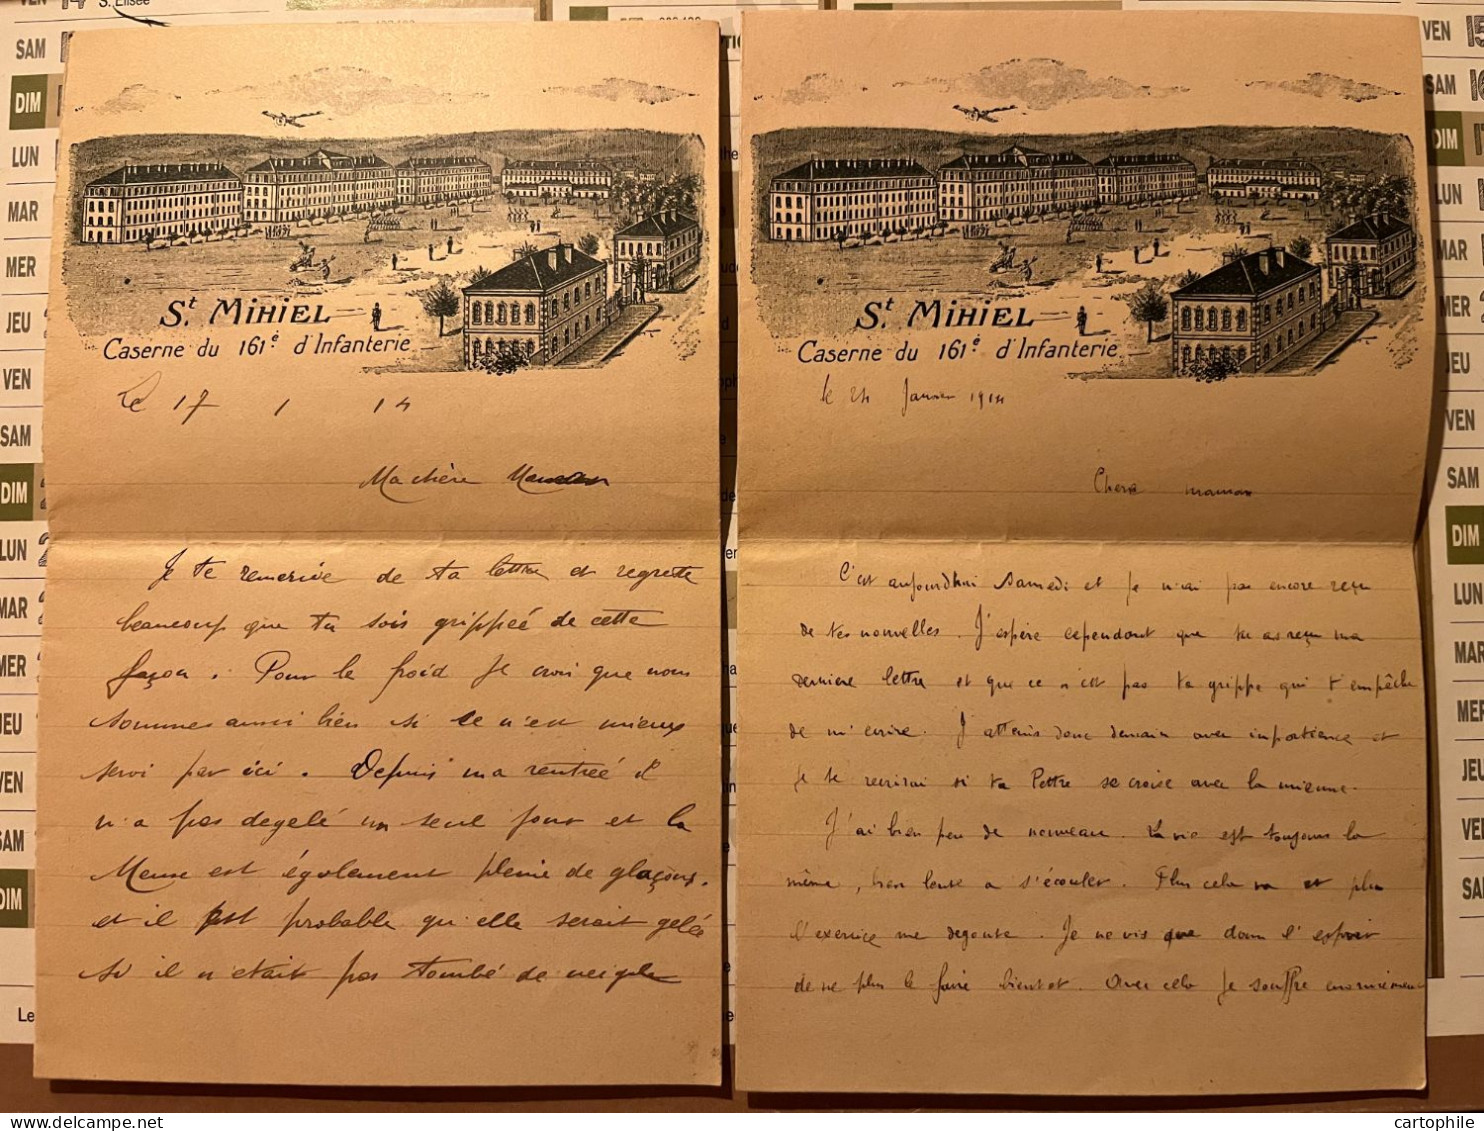 St. MIHIEL
Caserne du 161e d'Infanterie
Le 17 1 14
Ma chère Maman
Je te remercie de ta lettre et regrette
beaucoup que tu sois grippée de cette
façon. Pour le froid je crois que nous
sommes aussi bien si ce n'est mieux
servi par ici. Depuis ma rentrée il
n'a pas degelé un seul jour et la
Meuse est également pleine de glaçons.
et il est probable qu'elle serait gelée
si il n'etait pas tombé de neige
St. MIHIEL
Caserne du 161e d'Infanterie
le 24 Janvier 1914
Chere maman
C'est aujourdhui Samedi et je n'ai pas encore reçu
de tes nouvelles. J'espère cependant que tu as reçu ma
derniere lettre et que ce n'est pas ta grippe qui t'empêche
de m'ecrire. J'attends donc demain avec impatience et
je te recrirai si ta lettre se croise avec la mienne.
J'ai bien peu de nouveau. La vie est toujours la
même, bien lente a s'écouler. Plus cela va et plus
l'exercice me degoute. Je ne vis que dans l'espoir
de ne plus le faire bientot. Avec cela je souffre enormement
VEN 14 S. Elisée
SAM
DIM
LUN
MAR
MER
JEU
VEN
SAM
DIM
LUN
MAR
MER
JEU
VEN
SAM
DIM
Le
VEN 15
SAM 16
DIM
LUN
MAR
MER
JEU
VEN
SAM
DIM
LUN
MAR
MER
JEU
VEN
SAM
cartophile.com